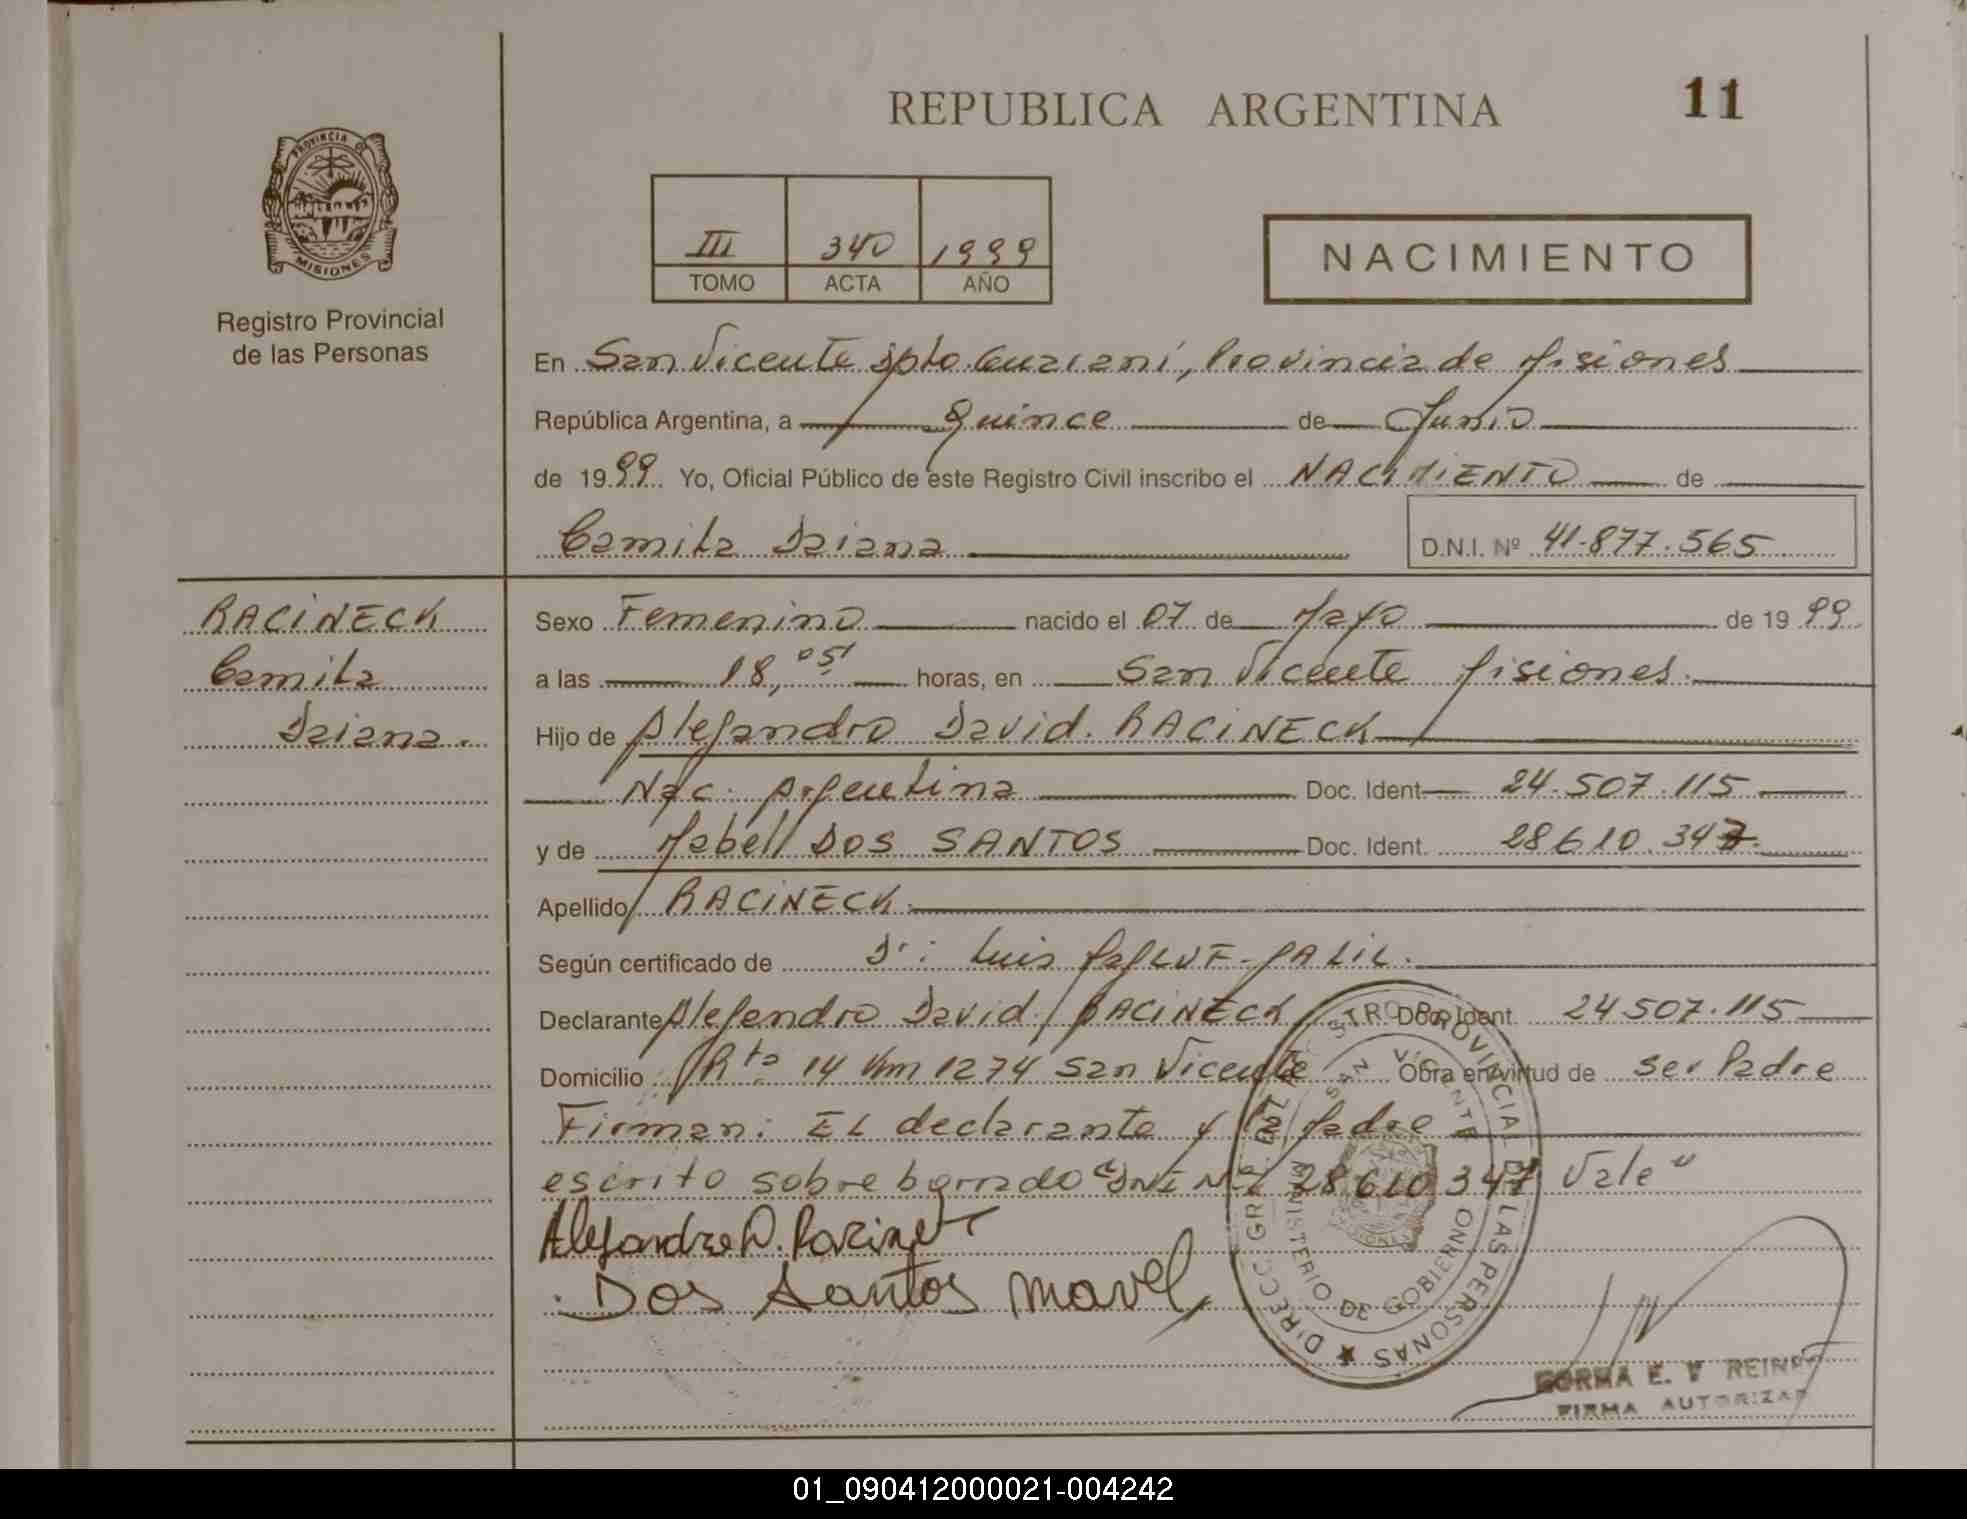 REPUBLICA ARGENTINA
11
PROVINCIA DE
MISIONES
Registro Provincial
de las Personas
III 340 1999
TOMO ACTA AÑO
NACIMIENTO
En San Vicente Dpto. Guaraní, Provincia de Misiones
República Argentina, a Quince de Junio
de 1999. Yo, Oficial Público de este Registro Civil inscribo el NACIMIENTO de
Camila Daiana
D.N.I. Nº 41.877.565
RACINECK
Camila
Daiana.
Sexo Femenino nacido el 07 de Mayo de 1999
a las 18,05' horas, en San Vicente Misiones.
Hijo de Alejandro David. RACINECK
Nac. Argentina Doc. Ident 24.507.115
y de Mabel DOS SANTOS Doc. Ident. 28610.347.
Apellido RACINECK.
Según certificado de Dr: Luis
Declarante Alejandro David RACINECK Doc. Ident. 24507.115
Domicilio Rta 14 Km 1274 San Vicente Obra en virtud de ser Padre
Firman: EL declarante y la Madre
escrito sobre borrado "DNI Nº 28610347 Vale"
Alejandro D. Racinek
Dos Santos Mavel
DIRECC. GRAL. DEL REGISTRO PROVINCIAL DE LAS PERSONAS
SAN VICENTE
MINISTERIO DE GOBIERNO
MISIONES
E. V REIN
FIRMA AUTORIZAD
01_090412000021-004242